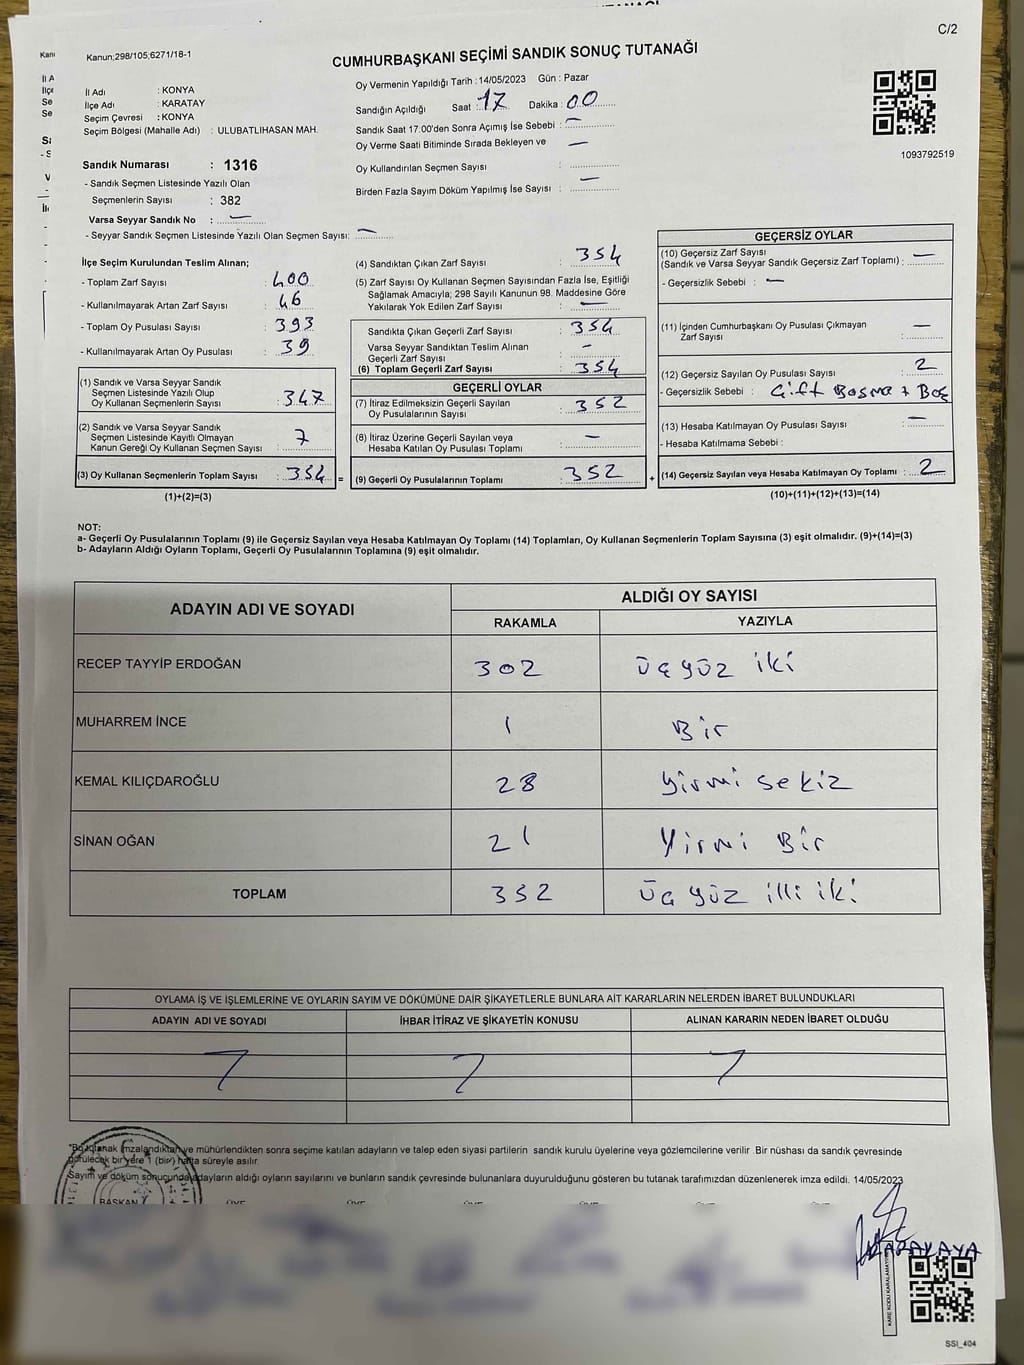 C/2
Kanun;298/105;6271/18-1
CUMHURBAŞKANI SEÇİMİ SANDIK SONUÇ TUTANAĞI
İl Adı : KONYA
İlçe Adı : KARATAY
Seçim Çevresi : KONYA
Seçim Bölgesi (Mahalle Adı) : ULUBATLIHASAN MAH.
Sandık Numarası : 1316
- Sandık Seçmen Listesinde Yazılı Olan
Seçmenlerin Sayısı : 382
Varsa Seyyar Sandık No : —
- Seyyar Sandık Seçmen Listesinde Yazılı Olan Seçmen Sayısı: —
Oy Vermenin Yapıldığı Tarih : 14/05/2023 Gün : Pazar
Sandığın Açıldığı Saat : 17 Dakika : 00
Sandık Saat 17:00'den Sonra Açımış İse Sebebi : —
Oy Verme Saati Bitiminde Sırada Bekleyen ve —
Oy Kullandırılan Seçmen Sayısı :
Birden Fazla Sayım Döküm Yapılmış İse Sayısı : —
1093792519
İlçe Seçim Kurulundan Teslim Alınan;
- Toplam Zarf Sayısı : 400
- Kullanılmayarak Artan Zarf Sayısı : 46
- Toplam Oy Pusulası Sayısı : 393
- Kullanılmayarak Artan Oy Pusulası : 39
(1) Sandık ve Varsa Seyyar Sandık
Seçmen Listesinde Yazılı Olup
Oy Kullanan Seçmenlerin Sayısı : 347
(2) Sandık ve Varsa Seyyar Sandık
Seçmen Listesinde Kayıtlı Olmayan
Kanun Gereği Oy Kullanan Seçmen Sayısı : 7
(3) Oy Kullanan Seçmenlerin Toplam Sayısı : 354 =
(1)+(2)=(3)
(4) Sandıktan Çıkan Zarf Sayısı : 354
(5) Zarf Sayısı Oy Kullanan Seçmen Sayısından Fazla İse, Eşitliği
Sağlamak Amacıyla; 298 Sayılı Kanunun 98. Maddesine Göre
Yakılarak Yok Edilen Zarf Sayısı : —
Sandıkta Çıkan Geçerli Zarf Sayısı : 354
Varsa Seyyar Sandıktan Teslim Alınan
Geçerli Zarf Sayısı : -
(6) Toplam Geçerli Zarf Sayısı : 354
GEÇERLİ OYLAR
(7) İtiraz Edilmeksizin Geçerli Sayılan
Oy Pusulalarının Sayısı : 352
(8) İtiraz Üzerine Geçerli Sayılan veya
Hesaba Katılan Oy Pusulası Toplamı : —
(9) Geçerli Oy Pusulalarının Toplamı : 352 +
GEÇERSİZ OYLAR
(10) Geçersiz Zarf Sayısı
(Sandık ve Varsa Seyyar Sandık Geçersiz Zarf Toplamı) : —
- Geçersizlik Sebebi : —
(11) İçinden Cumhurbaşkanı Oy Pusulası Çıkmayan
Zarf Sayısı : —
(12) Geçersiz Sayılan Oy Pusulası Sayısı : 2
- Geçersizlik Sebebi : Çift Basma + Boş
(13) Hesaba Katılmayan Oy Pusulası Sayısı : —
- Hesaba Katılmama Sebebi :
(14) Geçersiz Sayılan veya Hesaba Katılmayan Oy Toplamı : 2
(10)+(11)+(12)+(13)=(14)
NOT:
a- Geçerli Oy Pusulalarının Toplamı (9) ile Geçersiz Sayılan veya Hesaba Katılmayan Oy Toplamı (14) Toplamları, Oy Kullanan Seçmenlerin Toplam Sayısına (3) eşit olmalıdır. (9)+(14)=(3)
b- Adayların Aldığı Oyların Toplamı, Geçerli Oy Pusulalarının Toplamına (9) eşit olmalıdır.
ADAYIN ADI VE SOYADI ALDIĞI OY SAYISI
RAKAMLA YAZIYLA
RECEP TAYYİP ERDOĞAN 302 üçyüz iki
MUHARREM İNCE 1 Bir
KEMAL KILIÇDAROĞLU 28 Yirmi sekiz
SİNAN OĞAN 21 Yirmi Bir
TOPLAM 352 üçyüz illi iki
OYLAMA İŞ VE İŞLEMLERİNE VE OYLARIN SAYIM VE DÖKÜMÜNE DAİR ŞİKAYETLERLE BUNLARA AİT KARARLARIN NELERDEN İBARET BULUNDUKLARI
ADAYIN ADI VE SOYADI İHBAR İTİRAZ VE ŞİKAYETİN KONUSU ALINAN KARARIN NEDEN İBARET OLDUĞU
*Bu tutanak imzalandıktan ve mühürlendikten sonra seçime katılan adayların ve talep eden siyasi partilerin sandık kurulu üyelerine veya gözlemcilerine verilir. Bir nüshası da sandık çevresinde
görülecek bir yere 1 (bir) hafta süreyle asılır.
Sayım ve döküm sonucunda adayların aldığı oyların sayılarını ve bunların sandık çevresinde bulunanlara duyurulduğunu gösteren bu tutanak tarafımızdan düzenlenerek imza edildi. 14/05/2023
BAŞKAN
KARAKAYA
KARE KODU KARALAMAYIN
SSI_404